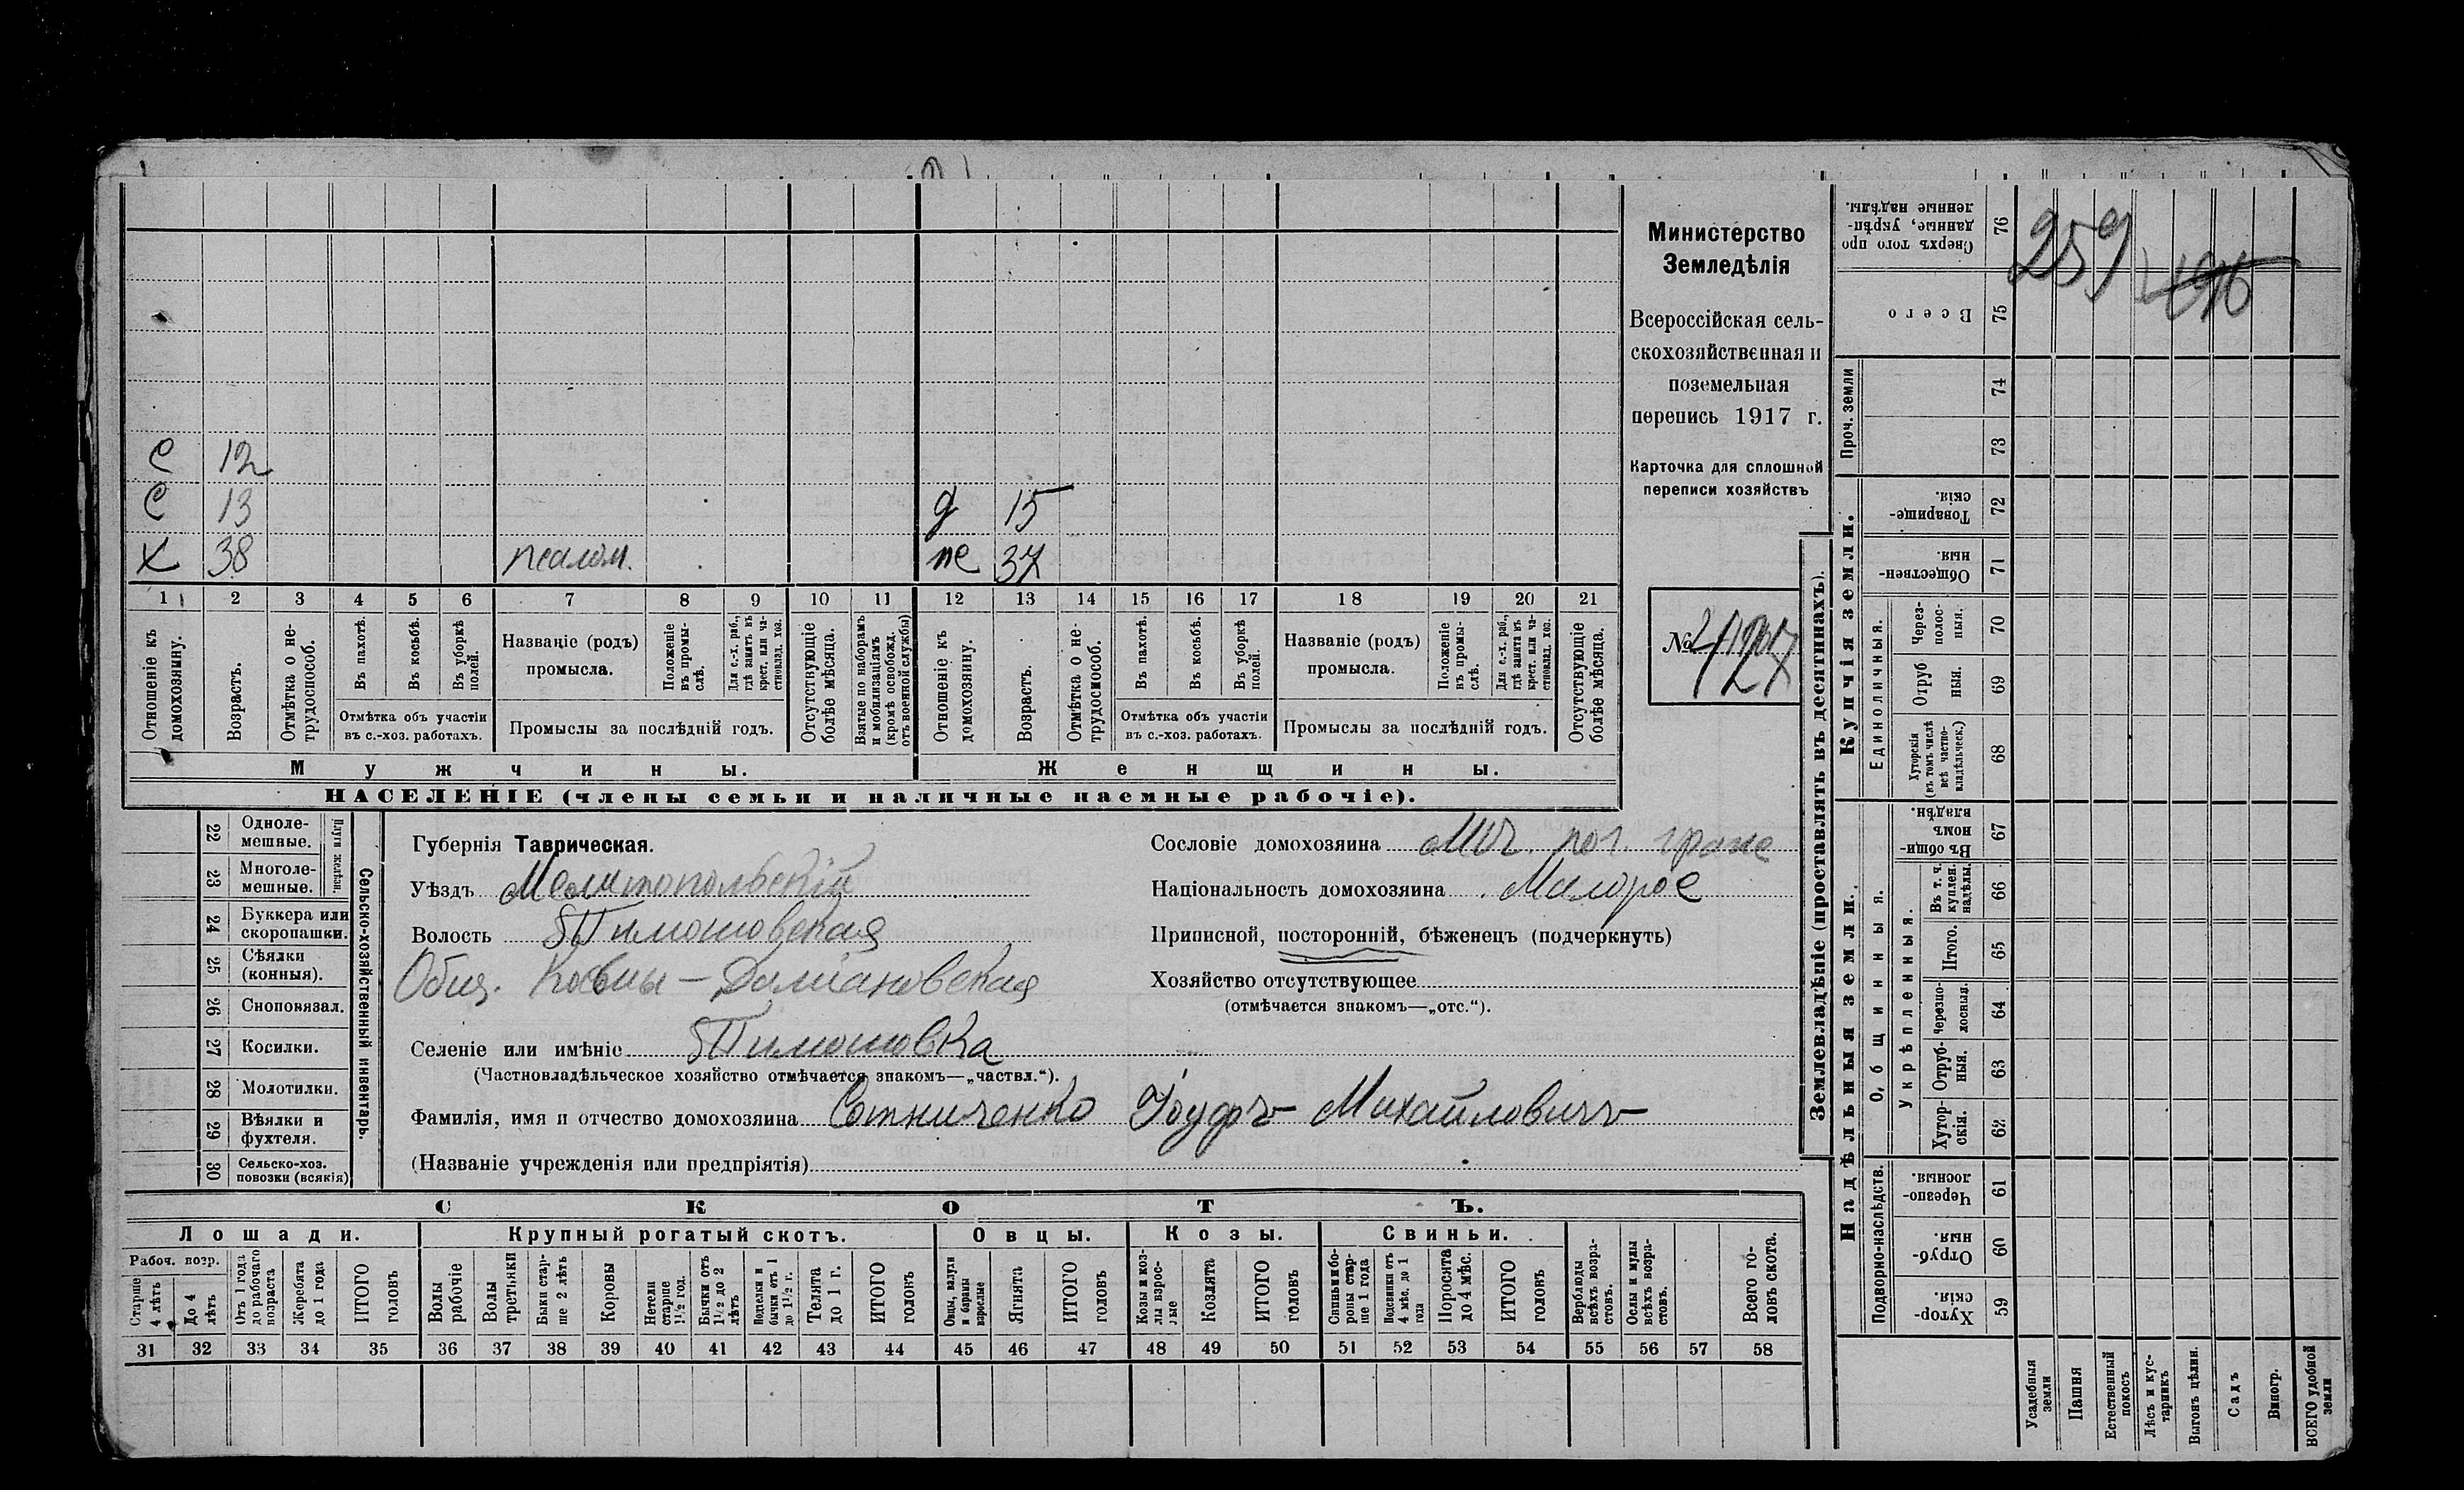 259
Министерство
Земледѣлія
Всероссійская сель-
скохозяйственная и
поземельная
перепись 1917 г.
Карточка для сплошной
переписи хозяйствъ
№ 127
С 12
С 13 д 15
Х 38 псалом. же 37
1 2 3 4 5 6 7 8 9 10 11 12 13 14 15 16 17 18 19 20 21
Отношеніе къ домохозяину.
Возрастъ.
Отмѣтка о не-трудоспособ.
Въ пахотѣ.
Въ косьбѣ.
Въ уборкѣ полей.
Отмѣтка объ участіи
въ с.-хоз. работахъ.
Названіе (родъ)
промысла.
Положеніе въ промы-слѣ.
Для с.-х. раб., гдѣ занятъ въ крест. или ча-стновлад. хоз.
Промыслы за послѣдній годъ.
Отсутствующіе болѣе мѣсяца.
Взятые по наборамъ и мобилизаціямъ (кромѣ освобожд. отъ военной службы)
Отношеніе къ домохозяину.
Возрастъ.
Отмѣтка о не-трудоспособ.
Въ пахотѣ.
Въ косьбѣ.
Въ уборкѣ полей.
Отмѣтка объ участіи
въ с.-хоз. работахъ.
Названіе (родъ)
промысла.
Положеніе въ промы-слѣ.
Для с.-х. раб., гдѣ занята въ крест. или ча-стновлад. хоз.
Промыслы за послѣдній годъ.
Отсутствующіе болѣе мѣсяца.
Мужчины. Женщины.
НАСЕЛЕНІЕ (члены семьи и наличные наемные рабочіе).
Сельско-хозяйственный инвентарь.
Плуги желѣзн.
22 Одноле-мешные.
23 Многоле-мешные.
24 Буккера или скоропашки.
25 Сѣялки (конныя).
26 Сноповязал.
27 Косилки.
28 Молотилки.
29 Вѣялки и фухтеля.
30 Сельско-хоз. повозки (всякія)
Губернія Таврическая.
Уѣздъ Мелитопольскій
Волость Тимошовская
Общ. Косьмы-Даміановская
Селеніе или имѣніе Тимошовка
(Частновладѣльческое хозяйство отмѣчается знакомъ—„частвл.“).
Фамилія, имя и отчество домохозяина Сотниченко Михайловичъ
(Названіе учрежденія или предпріятія)
Сословіе домохозяина поч. граж
Національность домохозяина Малорос
Приписной, посторонній, бѣженецъ (подчеркнуть)
Хозяйство отсутствующее
(отмѣчается знакомъ—„отс.“).
СКОТЪ.
Лошади. Крупный рогатый скотъ. Овцы. Козы. Свиньи.
Рабоч. возр.
Старше 4 лѣтъ
До 4 лѣтъ
Отъ 1 года до рабочаго возраста
Жеребята до 1 года
ИТОГО головъ
Волы рабочіе
Волы третьяки
Быки стар-ше 2 лѣтъ
Коровы
Нетели старше 1½ год.
Бычки отъ 1½ до 2 лѣтъ
Подтелки и бычки отъ 1 до 1½ г.
Телята до 1 г.
ИТОГО головъ
Овцы, валухи и бараны взрослые
Ягнята
ИТОГО головъ
Козы и коз-лы взрос-лые
Козлята
ИТОГО головъ
Свиньи и бо-ровы стар-ше 1 года
Подсвинки отъ 4 мѣс. до 1 года
Поросята до 4 мѣс.
ИТОГО головъ
Верблюды всѣхъ возра-стовъ.
Ослы и мулы всѣхъ возра-стовъ.
Всего го-ловъ скота.
31 32 33 34 35 36 37 38 39 40 41 42 43 44 45 46 47 48 49 50 51 52 53 54 55 56 57 58
Землевладѣніе (проставлять въ десятинахъ).
Сверхъ того про данные, укрѣп-ленные надѣлы. 76
Всего 75
Проч. земли
74
73
Купчія земли.
Товарище-скія. 72
Обществен-ныя. 71
Единоличныя.
Через-полос-ныя. 70
Отруб ныя. 69
Хуторскія (въ томъ числѣ всѣ частно-владѣльческ.) 68
Надѣльныя земли.
Общинныя.
Въ общи-номъ владѣн. 67
Укрѣпленныя.
Въ т. ч. куплен. надѣлы. 66
Итого. 65
Черезпо-лосныя. 64
Отруб-ныя. 63
Хутор-скія. 62
Подворно-наслѣдств.
Черезпо-лосныя. 61
Отруб-ныя. 60
Хутор-скія. 59
Усадебныя земли
Пашня
Естественный покосъ
Лѣсъ и кус-тарникъ
Выгонъ цѣлин.
Садъ
Виногр.
ВСЕГО удобной земли